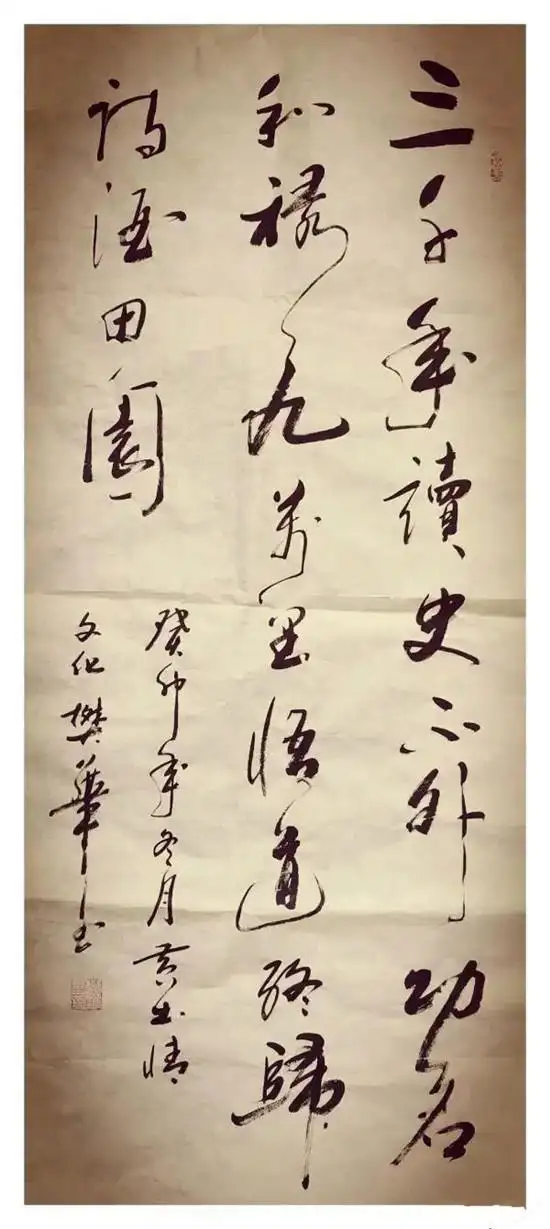 三千年讀史不外功名
利祿九萬里悟道終歸
詩酒田園
癸卯年冬月黄土情
文化樊華书